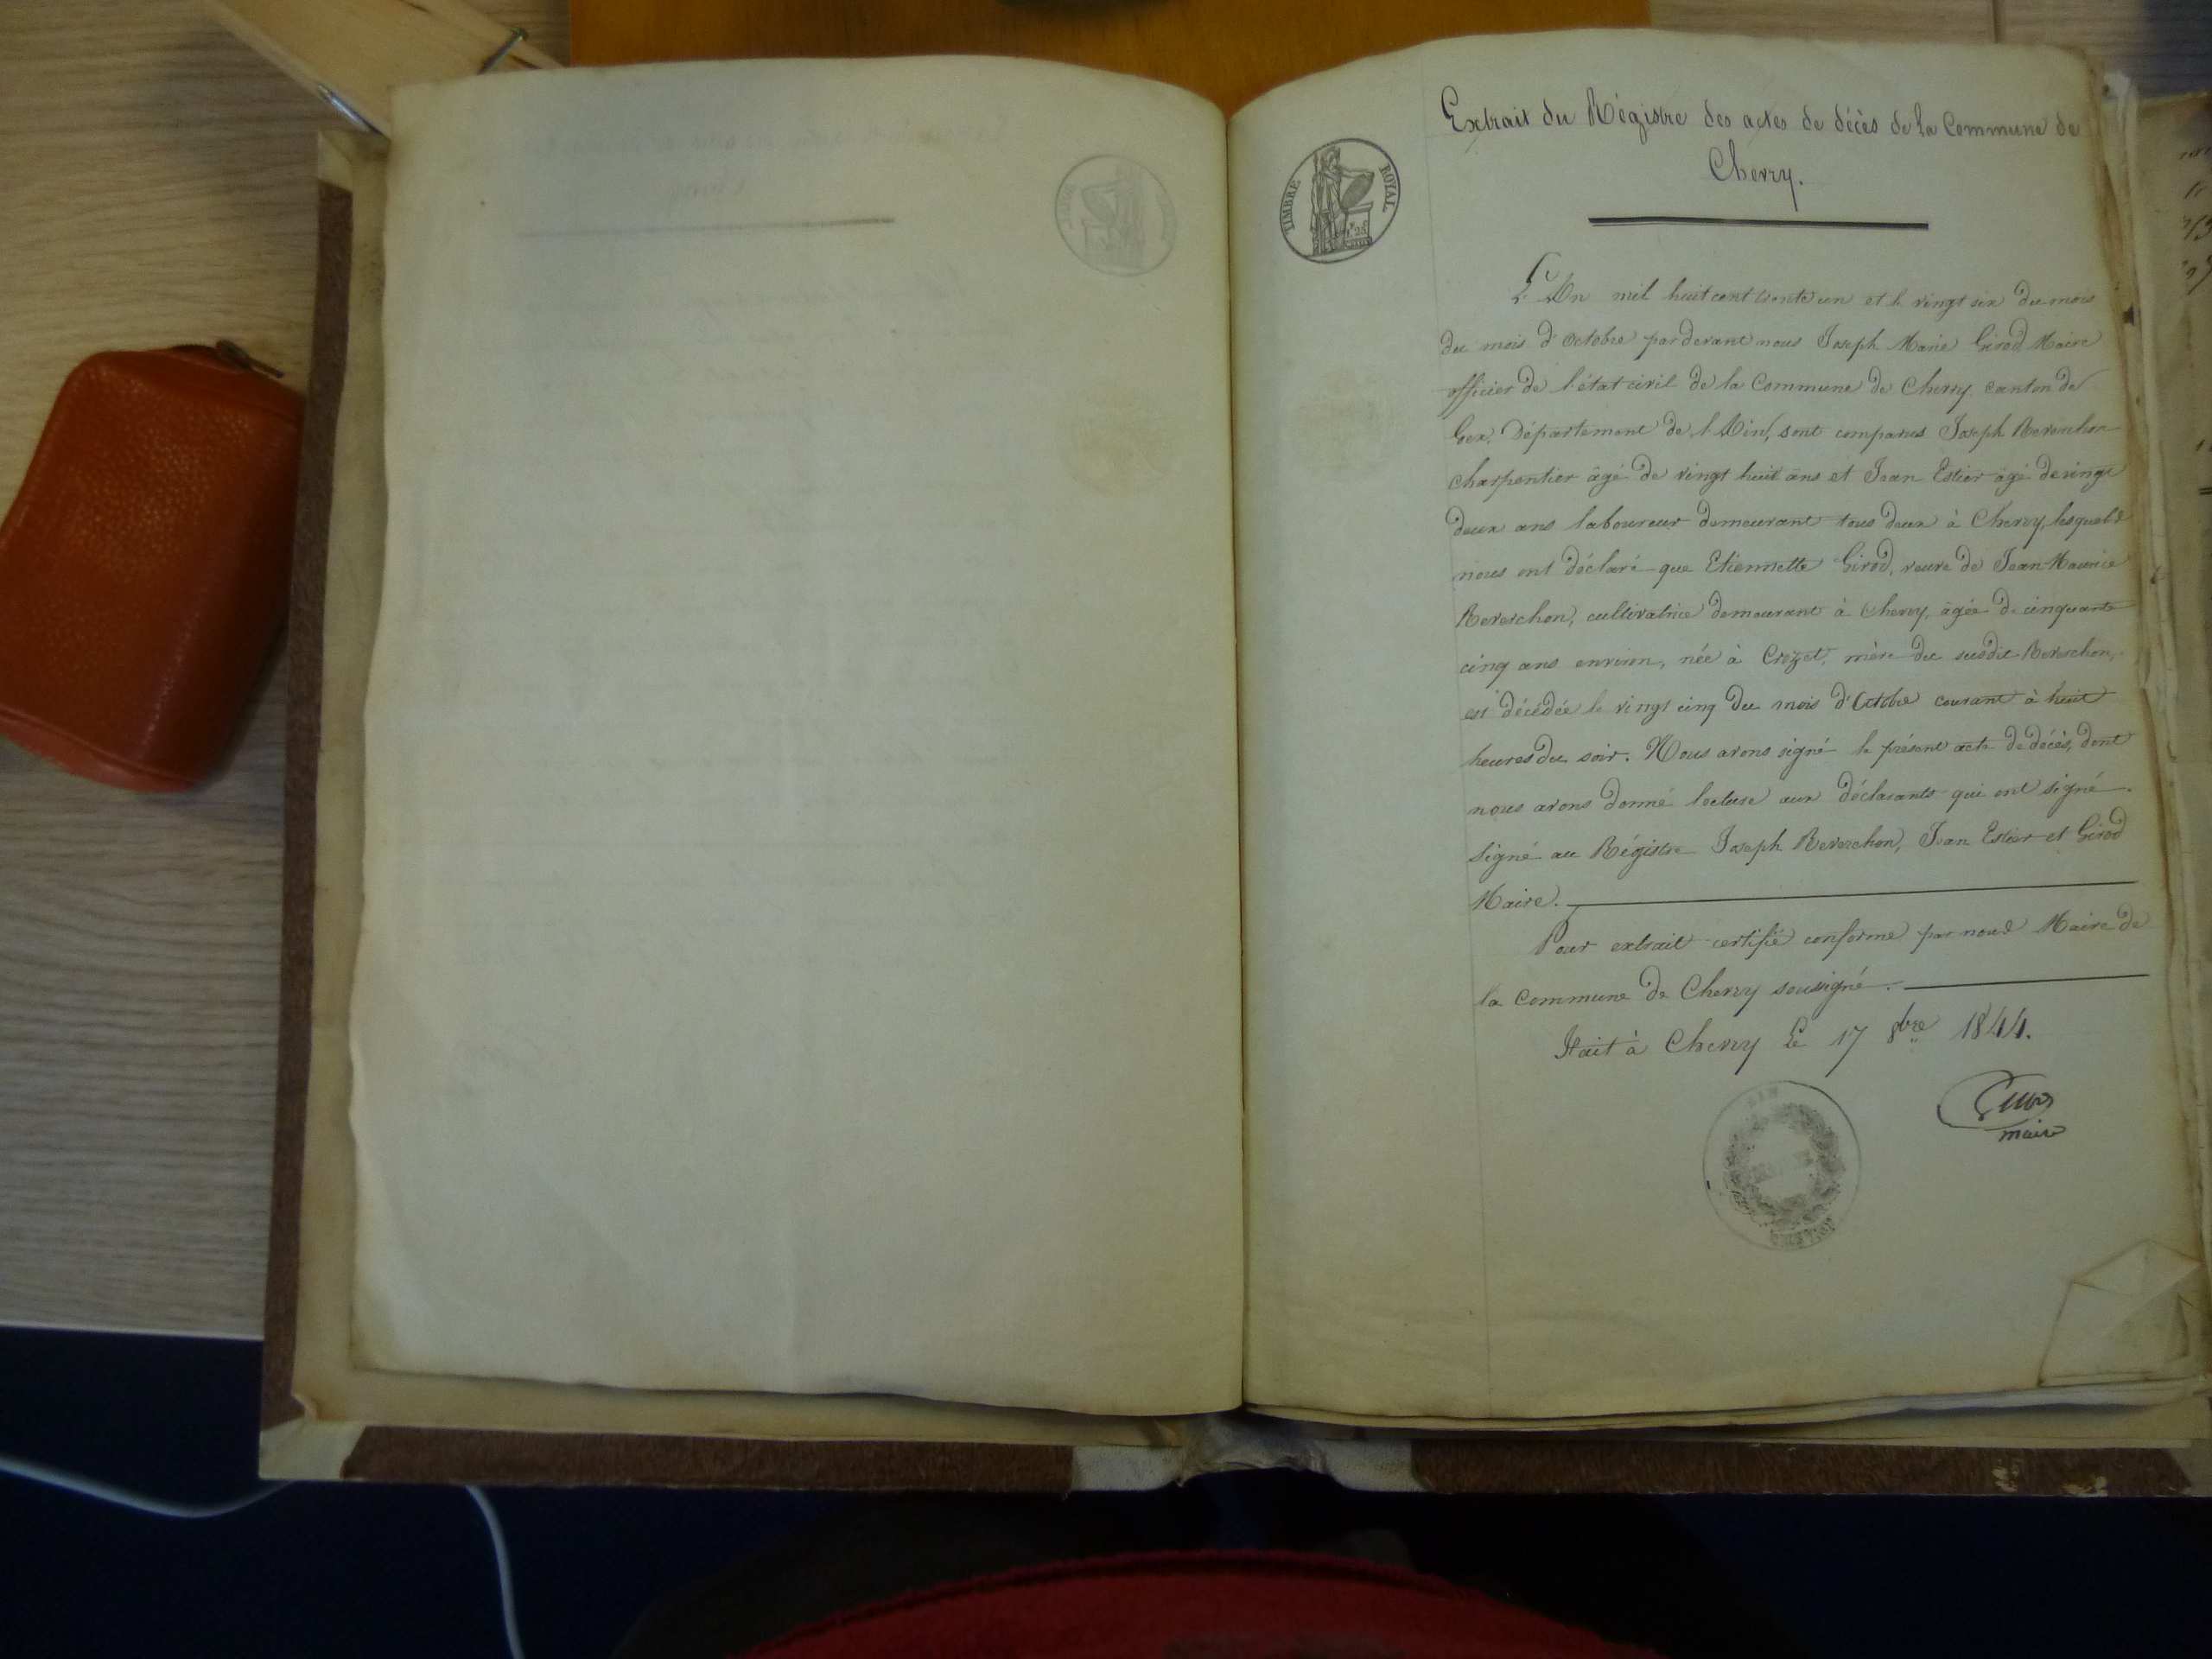 Extrait du Régistre des actes de décès de La Commune de
Chevry.
TIMBRE ROYAL
L'An mil huit cent trente un et le vingt six du mois
du mois d'Octobre pardevant nous Joseph Marie Girod Maire
officier de l'état civil de la Commune de Chevry canton de
Gex, Département de l'Ain, sont comparus Joseph Reverchon
charpentier âgé de vingt huit ans et Jean Estier âgé de vingt
deux ans laboureur demeurant tous deux à Chevry, lesquels
nous ont déclaré que Etiennette Girod, veuve de Jean-Maurice
Reverchon, cultivatrice demeurant à Chevry, âgée de cinquante
cinq ans environ, née à Crozet, mère du susdit Reverchon,
est décédée le vingt cinq du mois d'Octobre courant à huit
heures du soir. Nous avons signé le présent acte de décès, dont
nous avons donné lecture aux déclarants qui ont signé.
Signé au Régistre Joseph Reverchon, Jean Estier et Girod
Maire.
Pour extrait certifié conforme par nous Maire de
la Commune de Chevry soussigné.
Fait à Chevry Le 17 8bre 1844.
maire